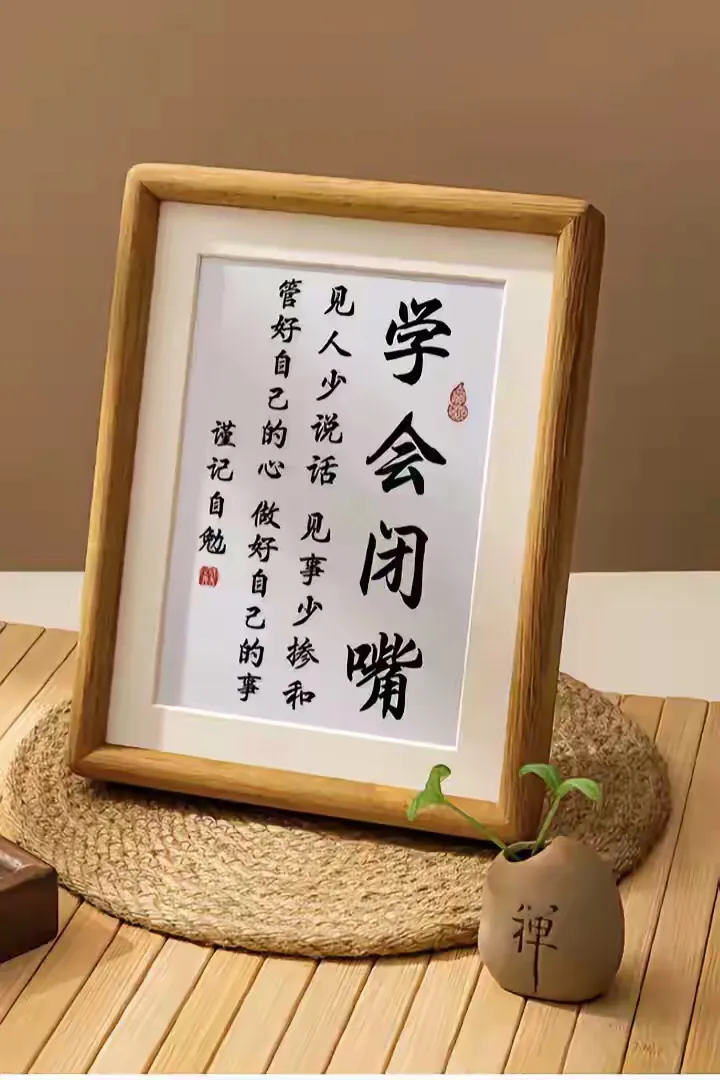 学会闭嘴
见人少说话 见事少掺和
管好自己的心 做好自己的事
谨记自勉
禅